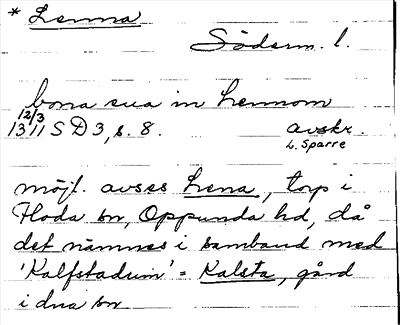 * Lenna
Söderm. l.
bona sua in Lennom
12/3
1311 SD 3, s. 8. avskr.
L. Sparre
möjl. avses Lena, torp i
Floda sn, Oppunda hd, då
det nämnes i samband med
'Kalfstadum' = Kalsta, gård
i dna sn